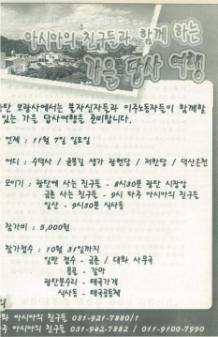 아시아의 친구들과 함께 하는
가을 답사 여행
보광사에서는 불자신자들과 이주노동자들이 함께할
있는 가을 답사여행을 준비합니다.
언제 : 11월 7일 일요일
어디 : 수덕사 / 윤봉길 생가 광현당 / 저한당 / 덕산온천
모이기 : 광탄에 사는 친구들 - 8시30분 광탄 시장앞
금촌 사는 친구들 - 9시 파주 아시아의 친구들
일산 - 9시30분 식사동
참가비 : 5,000원
참가접수 : 10월 31일까지
일반 접수 - 금촌 / 대화 사무국
몽골 -
광탄분수리 - 태국가게
식사동 - 태국공동체
대화 아시아의 친구들 031-921-7880/1
파주 아시아의 친구들 031-942-7882 / 011-9100-7990